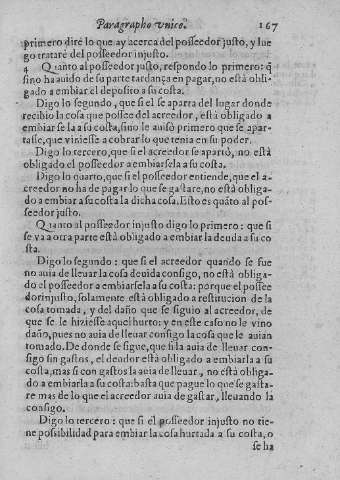 Paragrapho vnico. 167
primero diré lo que ay acerca del posseedor justo, y lue
go trataré del posseedor injusto.
4 Quanto al posseedor justo, respondo lo primero: q̃
sino ha auido de su parte tardança en pagar, no está obli-
gado a embiar el deposito a su costa.
Digo lo segundo, que si el se aparra del lugar donde
recibio la cosa que possee del acreedor, està obligado a
embiarsela a su costa, sino le auisò primero que se apar-
tasse, que viniesse a cobrar lo que tenia en su poder.
Digo lo tercero, que si el acreedor se apartò, no està
obligado el posseedor a embiarsela a su costa.
Digo lo quarto, que si el posseedor entiende, que el a-
creedor no ha de pagar lo que se gastare, no està obliga-
do a embiar a su costa la dicha cosa. Esto es quãto al pos-
seedor justo.
Quanto al posseedor injusto digo lo primero: que si
se va a otra parte està obligado a embiar la deuda a su co
sta.
Digo lo segundo: que si el acreedor quando se fue
no auia de lleuar la cosa deuida consigo, no està obliga-
do el possedor a embiarsela a su costa: porque el possee
dor injusto, solamente està obligado a restitucion de la
cosa tomada, y del daño que se siguio al acreedor, de
que se le hiziesse aquel hurto: y en este caso no le vino
daño, pues no auia de lleuar consigo la cosa que le auian
tomado. De donde se sigue, que si la auia de lleuar con-
sigo sin gastos, el deudor està obligado a embiarla a su
costa, mas si con gastos la auia de lleuar, no està obliga-
do a embiarla a su costa: basta que pague lo que se gasta-
re mas de lo que el acreedor auia de gastar, lleuando la
consigo.
Digo lo tercero: que si el posseedor injusto no tie-
ne possibilidad para embiar la cosa hurtada a su costa, o
se ha